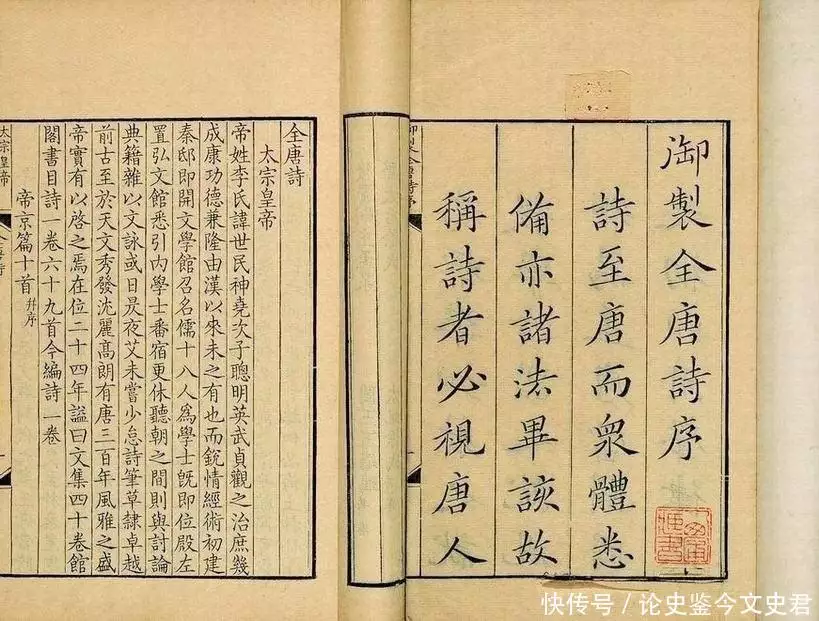 御製全唐詩序
詩至唐而衆體悉
備亦諸法畢該故
稱詩者必視唐人
全唐詩
太宗皇帝
帝姓李氏諱世民神堯次子聰明英武貞觀之治庶幾
成康功德兼隆由漢以來未之有也而銳情經術初建
秦邸即開文學館召名儒十八人為學士既即位殿左
置弘文館悉引內學士番宿更休聽朝之間則與討論
典籍雜以文詠或日昃夜艾未嘗少怠詩筆草隸卓越
前古至於天文秀發沈麗高朗有唐三百年風雅之盛
帝實有以啓之焉在位二十四年謚曰文集四十卷館
閣書目詩一卷六十九首今編詩一卷
帝京篇十首 幷序
太宗皇帝
快传号/论史鉴今文史君